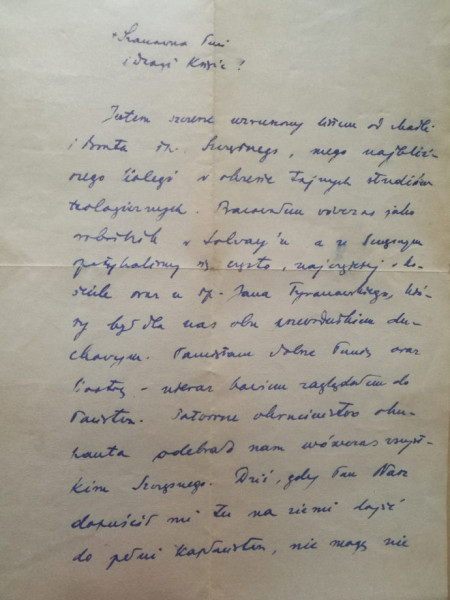 +Szanowna Pani
i drogi Księże!
Jestem szczerze wzruszony listem od Matki
i Brata śp. Szczęsnego, mego najbliż-
szego kolegi w okresie tajnych studiów
teologicznych. Pracowałem wówczas jako
robotnik w Solvay'u a ze Szczęsnym
spotykaliśmy się często, najczęściej w ko-
ściele oraz u śp. Jana Tyranowskiego, któ-
ry był dla nas obu przewodnikiem du-
chowym. Pamiętam dobrze Panią oraz
Siostrę - nieraz bowiem zaglądałem do
Państwa. Potworne okrucieństwo oku-
panta odebrało nam wówczas wszyst-
kim Szczęsnego. Dziś, gdy Pan Nasz
dopuścił mi tu na ziemi dojść
do pełni kapłaństwa, nie mogę nie